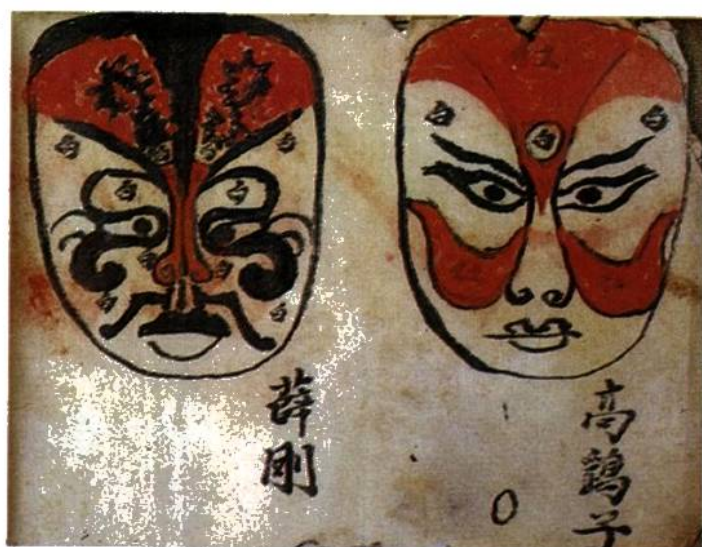 白
白
白
白
白
白
白
白
白
白
薛剛
白
白
白
高鷂子